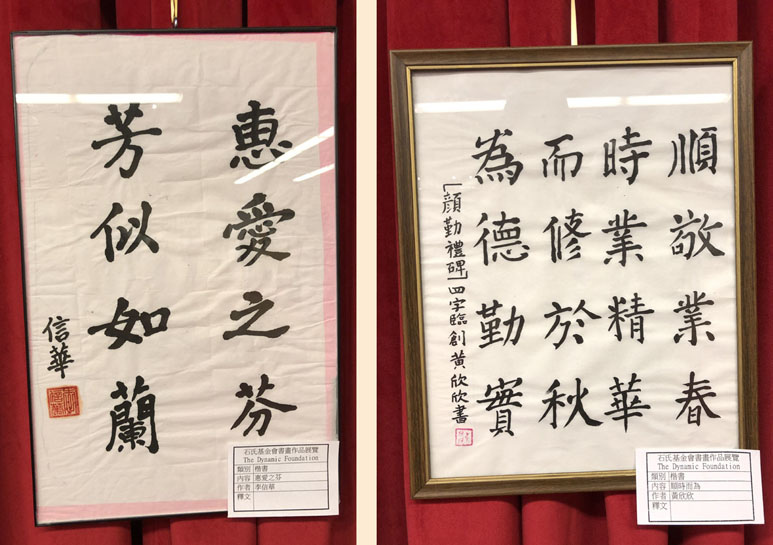 惠愛之芬
芳似如蘭
信華
石氏基金會書畫作品展覽
The Dynamic Foundation
類別 楷書
內容 惠愛之芬
作者 李信華
釋文
順敬業春
時業精華
而修於秋
為德勤實
「顏勤禮碑」四字臨創黃欣欣書
石氏基金會書畫作品展覽
The Dynamic Foundation
類別 楷書
內容 順時而為
作者 黃欣欣
釋文